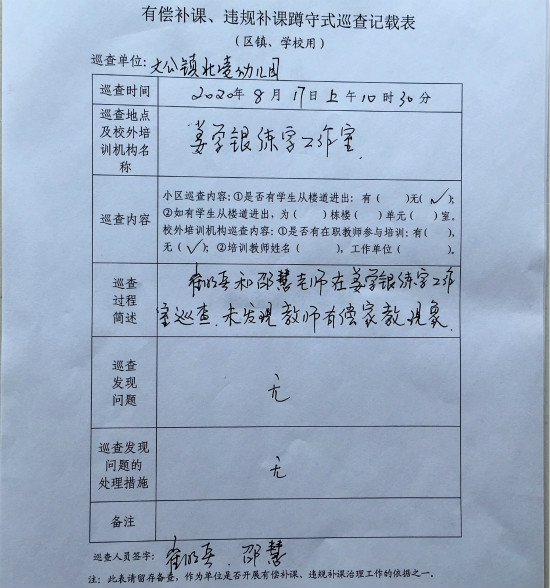 有偿补课、违规补课蹲守式巡查记载表
（区镇、学校用）
巡查单位：大公镇北凌幼儿园
巡查时间
2020年8月17日上午10时30分
巡查地点
及校外培
训机构名
称
姜学银练字工作室.
巡查内容
小区巡查内容：①是否有学生从楼道进出：有（ ）无（✓）；
②如有学生从楼道进出，为（ ）栋楼（ ）单元（ ）室。
校外培训机构巡查内容：①是否有在职教师参与培训：有（ ），
无（✓）；②培训教师姓名（ ），工作单位（ ）。
巡查
过程
简述
崔明 和邵慧老师在姜学银练字工作
室巡查.未发现教师有偿家教现象.
巡查
发现
问题
无
巡查发现
问题的
处理措施
无
备注
巡查人员签字：崔明 . 邵慧
注：此表请留存备查，作为单位是否开展有偿补课、违规补课治理工作的依据之一。